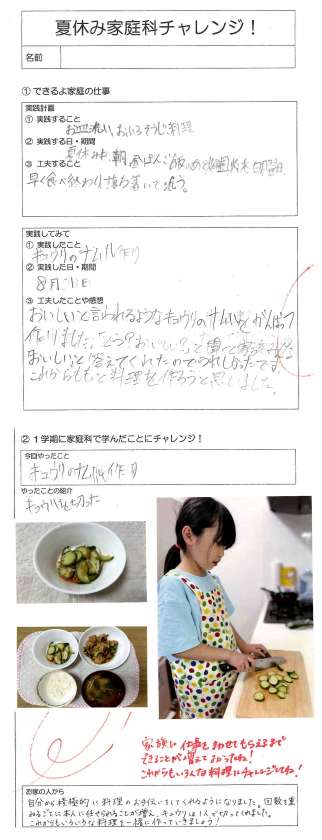 夏休み家庭科チャレンジ！
名前
① できるよ家庭の仕事
実践計画
① 実践すること
お皿洗い おふろそうじ 料理
② 実践する日・期間
夏休み中、朝 昼ばんごはんのあと
③ 工夫すること
早く食べ終わり
実践してみて
① 実践したこと
キュウリのナムル作り
② 実践した日・期間
8月11日
③ 工夫したことや感想
おいしいと言われるようなキュウリのナムルをがんばって
作りました。「どう？おいしい？」と聞くと
おいしいと答えてくれたのでうれしかったです。
これからももっと料理を作ろうと思いました。
② 1学期に家庭科で学んだことにチャレンジ！
今回やったこと
キュウリのナムル作り
やったことの紹介
キュウリを切った
家族に仕事をまかせてもらえるまで
できることが増えて
これからもいろんな料理にチャレンジしてね！
お家の人から
自分から積極的に料理のお手伝いをしてくれるようになりました。回数を重
ねるごとに本人に任せられることが増え、キュウリは1人で切ってくれました。
これからもいろいろな料理を一緒に作っていきましょう！